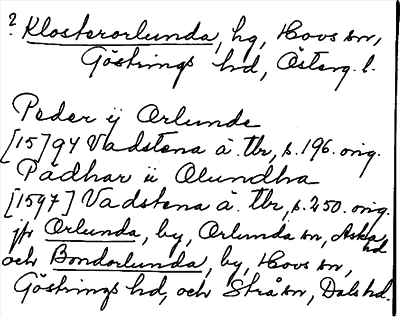 ? Klosterorlunda, hg, Hovs sn,
Göstrings hd, Österg. l.
Peder ij Orlunde
[15]94 Vadstena ä. tbr, s. 196. orig.
Pädhar ii Olundha
[1597] Vadstena ä. tbr, s. 250. orig.
jfr Orlunda, by, Orlunda sn, Aska hd
och Bondorlunda, by, Hovs sn,
Göstrings hd, och Strå sn, Dals hd.